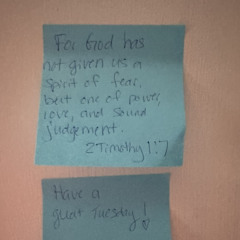 For God has
not given us a
spirit of fear,
but one of power,
love, and sound
judgement.
2 Timothy 1:7
Have a
great Tuesday!